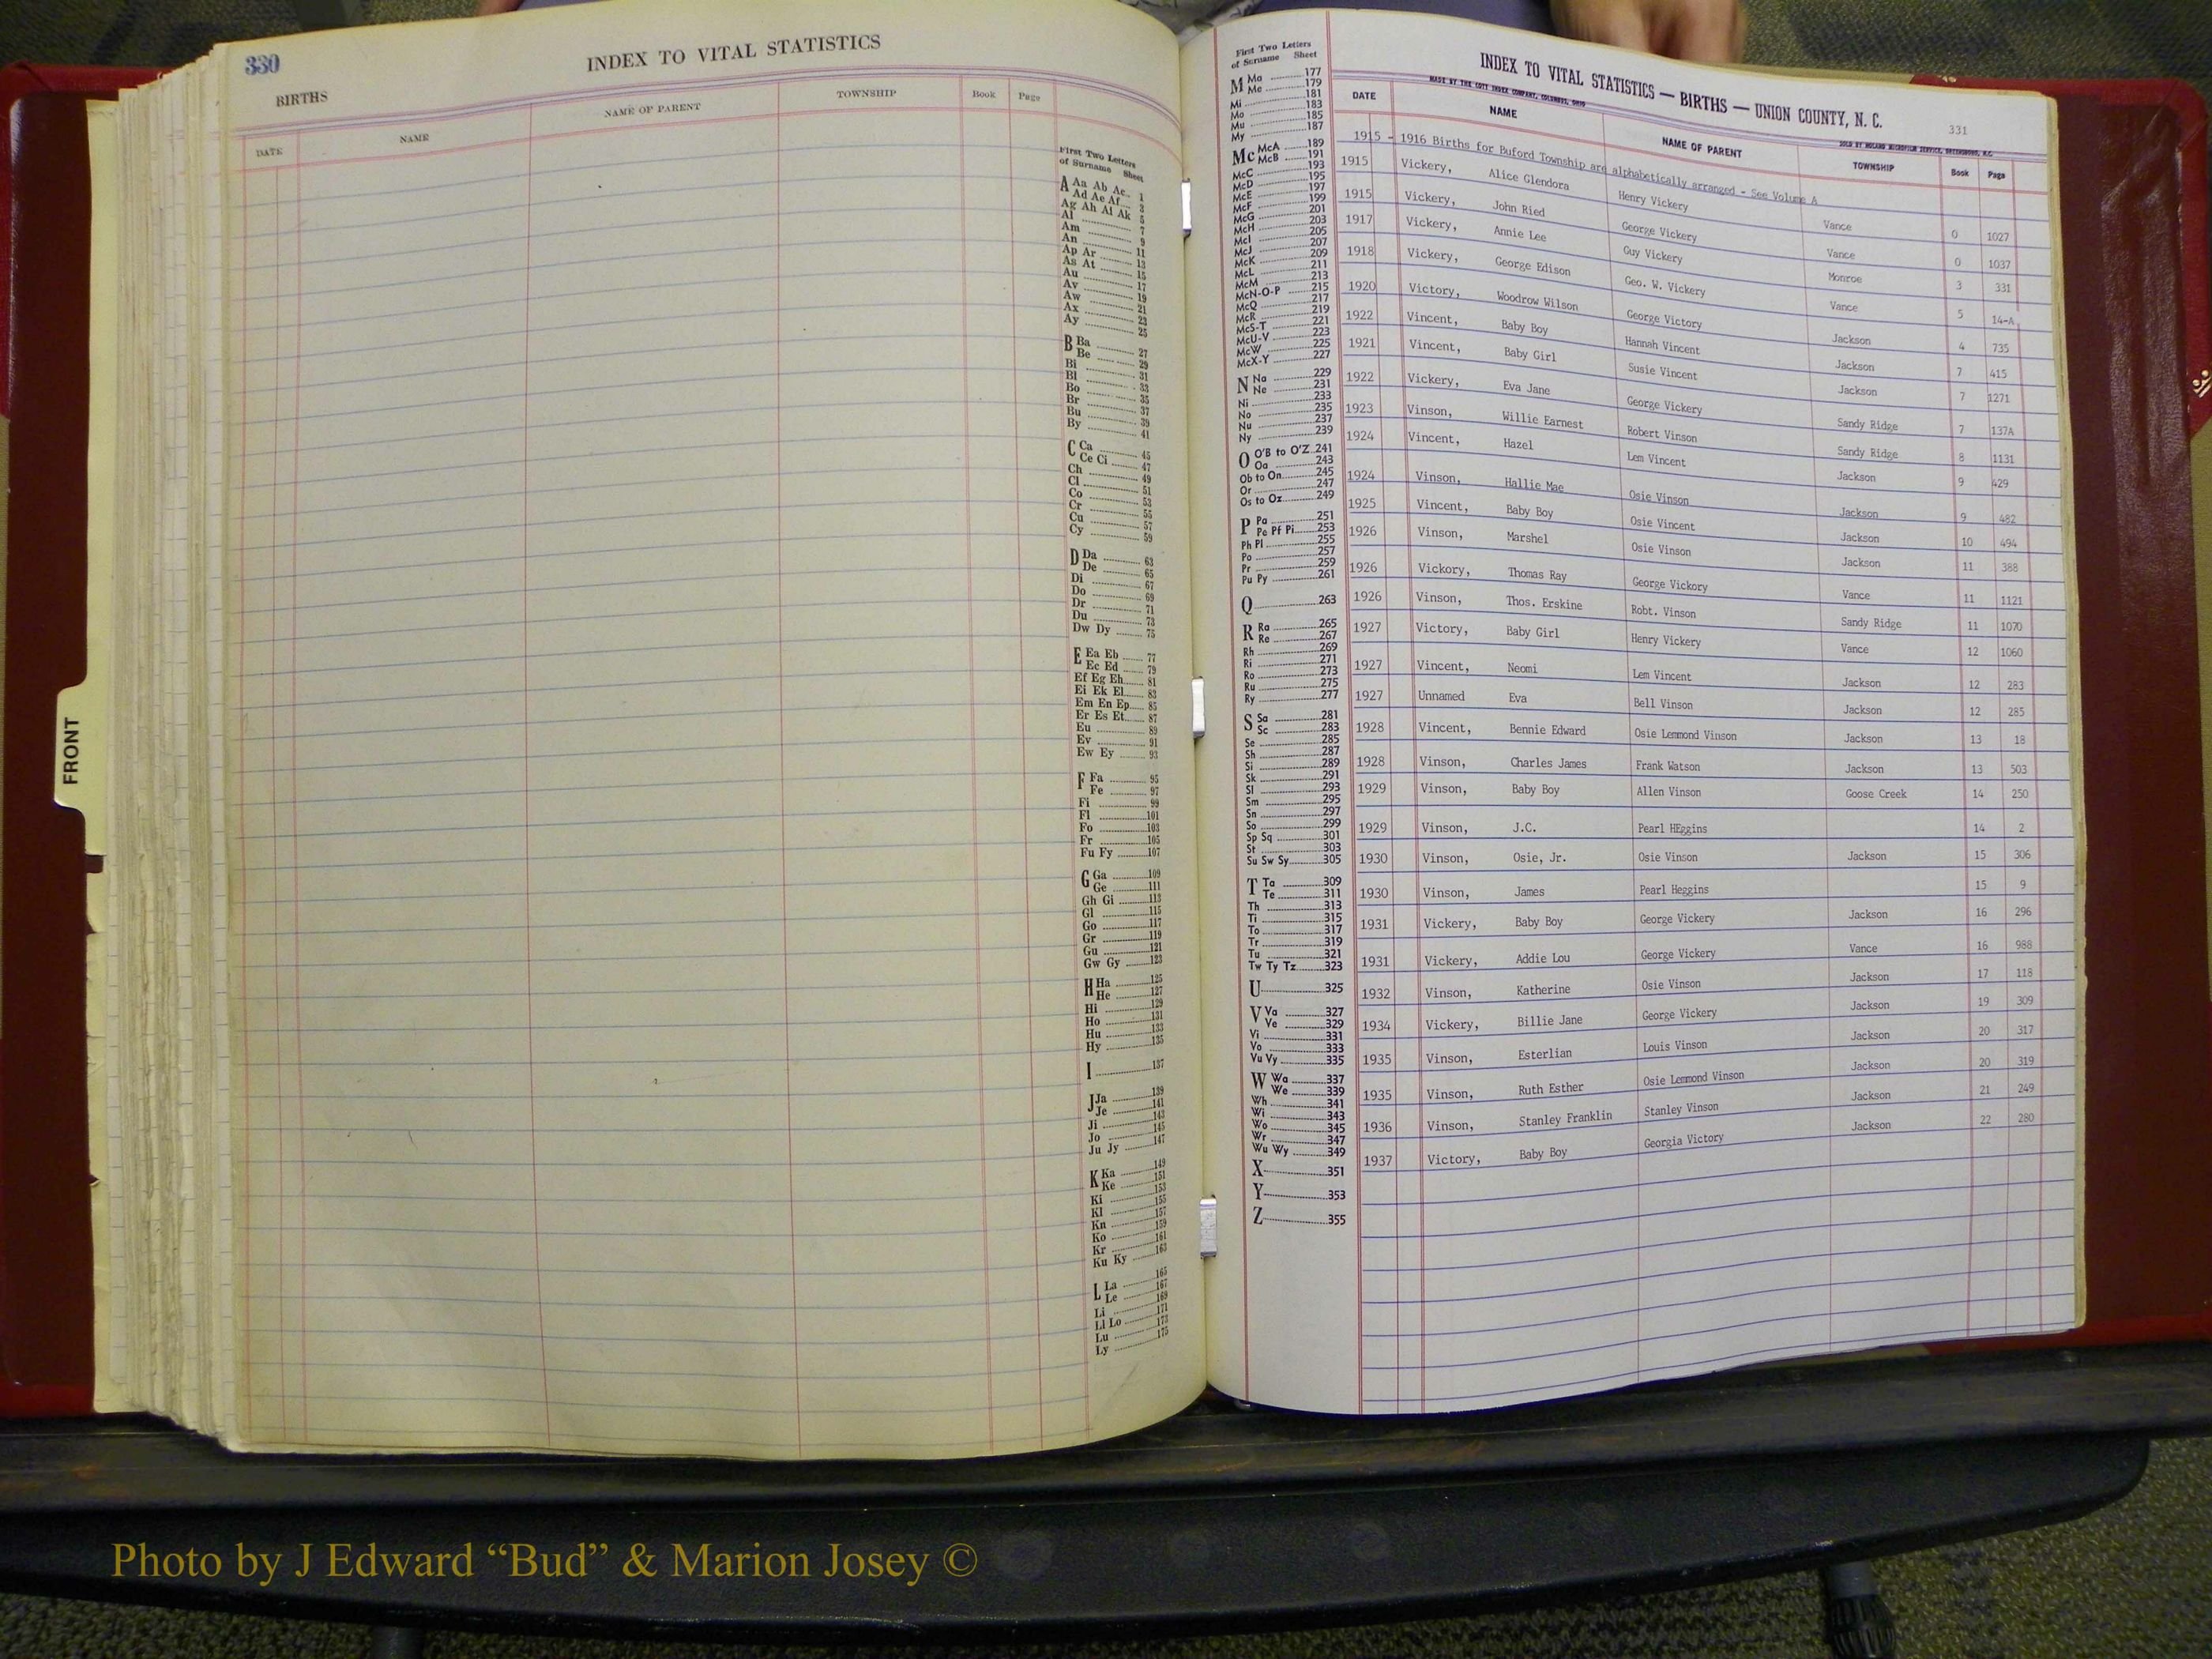 330
INDEX TO VITAL STATISTICS
BIRTHS
DATE NAME NAME OF PARENT TOWNSHIP Book Page
First Two Letters
of Surname Sheet
A Aa Ab Ac 1
Ad Ae Af 3
Ag Ah Ai Ak 5
Al 7
Am 9
An 11
Ap Ar 13
As At 15
Au 17
Av 19
Aw 21
Ax 23
Ay 25
B Ba 27
Be 29
Bi 31
Bl 33
Bo 35
Br 37
Bu 39
By 41
C Ca 45
Ce Ci 47
Ch 49
Cl 51
Co 53
Cr 55
Cu 57
Cy 59
D Da 63
De 65
Di 67
Do 69
Dr 71
Du 73
Dw Dy 75
E Ea Eb 77
Ec Ed 79
Ef Eg Eh 81
Ei Ek El 83
Em En Ep 85
Er Es Et 87
Eu 89
Ev 91
Ew Ey 93
F Fa 95
Fe 97
Fi 99
Fl 101
Fo 103
Fr 105
Fu Fy 107
G Ga 109
Ge 111
Gh Gi 113
Gl 115
Go 117
Gr 119
Gu 121
Gw Gy 123
H Ha 125
He 127
Hi 129
Ho 131
Hu 133
Hy 135
I 137
J Ja 139
Je 141
Ji 143
Jo 145
Ju Jy 147
K Ka 149
Ke 151
Ki 153
Kl 155
Kn 157
Ko 159
Kr 161
Ku Ky 163
L La 165
Le 167
Li 169
Ll Lo 171
Lu 173
Ly 175
FRONT
First Two Letters
of Surname Sheet
M Ma 177
Me 179
Mi 181
Mo 183
Mu 185
My 187
Mc McA 189
McB 191
McC 193
McD 195
McE 197
McF 199
McG 201
McH 203
McI 205
McJ 207
McK 209
McL 211
McM 213
McN-O-P 215
McQ 217
McR 219
McS-T 221
McU-V 223
McW 225
McX-Y 227
N Na 229
Ne 231
Ni 233
No 235
Nu 237
Ny 239
O O'B to O'Z 241
Oa 243
Ob to On 245
Or 247
Os to Oz 249
P Pa 251
Pe Pf Pi 253
Ph Pl 255
Po 257
Pr 259
Pu Py 261
Q 263
R Ra 265
Re 267
Rh 269
Ri 271
Ro 273
Ru 275
Ry 277
S Sa 281
Sc 283
Se 285
Sh 287
Si 289
Sk 291
Sl 293
Sm 295
Sn 297
So 299
Sp Sq 301
St 303
Su Sw Sy 305
T Ta 309
Te 311
Th 313
Ti 315
To 317
Tr 319
Tu 321
Tw Ty Tz 323
U 325
V Va 327
Ve 329
Vi 331
Vo 333
Vu Vy 335
W Wa 337
We 339
Wh 341
Wi 343
Wo 345
Wr 347
Wu Wy 349
X 351
Y 353
Z 355
INDEX TO VITAL STATISTICS — BIRTHS — UNION COUNTY, N. C.
331
MADE BY THE COTT INDEX COMPANY, COLUMBUS, OHIO
SOLD BY MICROFILM SERVICE, GREENSBORO, N.C.
DATE NAME NAME OF PARENT TOWNSHIP Book Page
1915 - 1916 Births for Buford Township are alphabetically arranged - See Volume A
1915 Vickery, Alice Glendora Henry Vickery Vance 0 1027
1915 Vickery, John Ried George Vickery Vance 0 1037
1917 Vickery, Annie Lee Guy Vickery Monroe 3 331
1918 Vickery, George Edison Geo. W. Vickery Vance 5 14-A
1920 Victory, Woodrow Wilson George Victory Jackson 4 735
1922 Vincent, Baby Boy Hannah Vincent Jackson 7 415
1921 Vincent, Baby Girl Susie Vincent Jackson 7 1271
1922 Vickery, Eva Jane George Vickery Sandy Ridge 7 137A
1923 Vinson, Willie Earnest Robert Vinson Sandy Ridge 8 1131
1924 Vincent, Hazel Lem Vincent Jackson 9 429
1924 Vinson, Hallie Mae Osie Vinson Jackson 9 482
1925 Vincent, Baby Boy Osie Vincent Jackson 10 494
1926 Vinson, Marshel Osie Vinson Jackson 11 388
1926 Vickory, Thomas Ray George Vickory Vance 11 1121
1926 Vinson, Thos. Erskine Robt. Vinson Sandy Ridge 11 1070
1927 Victory, Baby Girl Henry Vickery Vance 12 1060
1927 Vincent, Neomi Lem Vincent Jackson 12 283
1927 Unnamed Eva Bell Vinson Jackson 12 285
1928 Vincent, Bennie Edward Osie Lemmond Vinson Jackson 13 18
1928 Vinson, Charles James Frank Watson Jackson 13 503
1929 Vinson, Baby Boy Allen Vinson Goose Creek 14 250
1929 Vinson, J.C. Pearl HEggins 14 2
1930 Vinson, Osie, Jr. Osie Vinson Jackson 15 306
1930 Vinson, James Pearl Heggins 15 9
1931 Vickery, Baby Boy George Vickery Jackson 16 296
1931 Vickery, Addie Lou George Vickery Vance 16 988
1932 Vinson, Katherine Osie Vinson Jackson 17 118
1934 Vickery, Billie Jane George Vickery Jackson 19 309
1935 Vinson, Esterlian Louis Vinson Jackson 20 317
1935 Vinson, Ruth Esther Osie Lemmond Vinson Jackson 20 319
1936 Vinson, Stanley Franklin Stanley Vinson Jackson 21 249
1937 Victory, Baby Boy Georgia Victory Jackson 22 280
Photo by J Edward “Bud” & Marion Josey ©